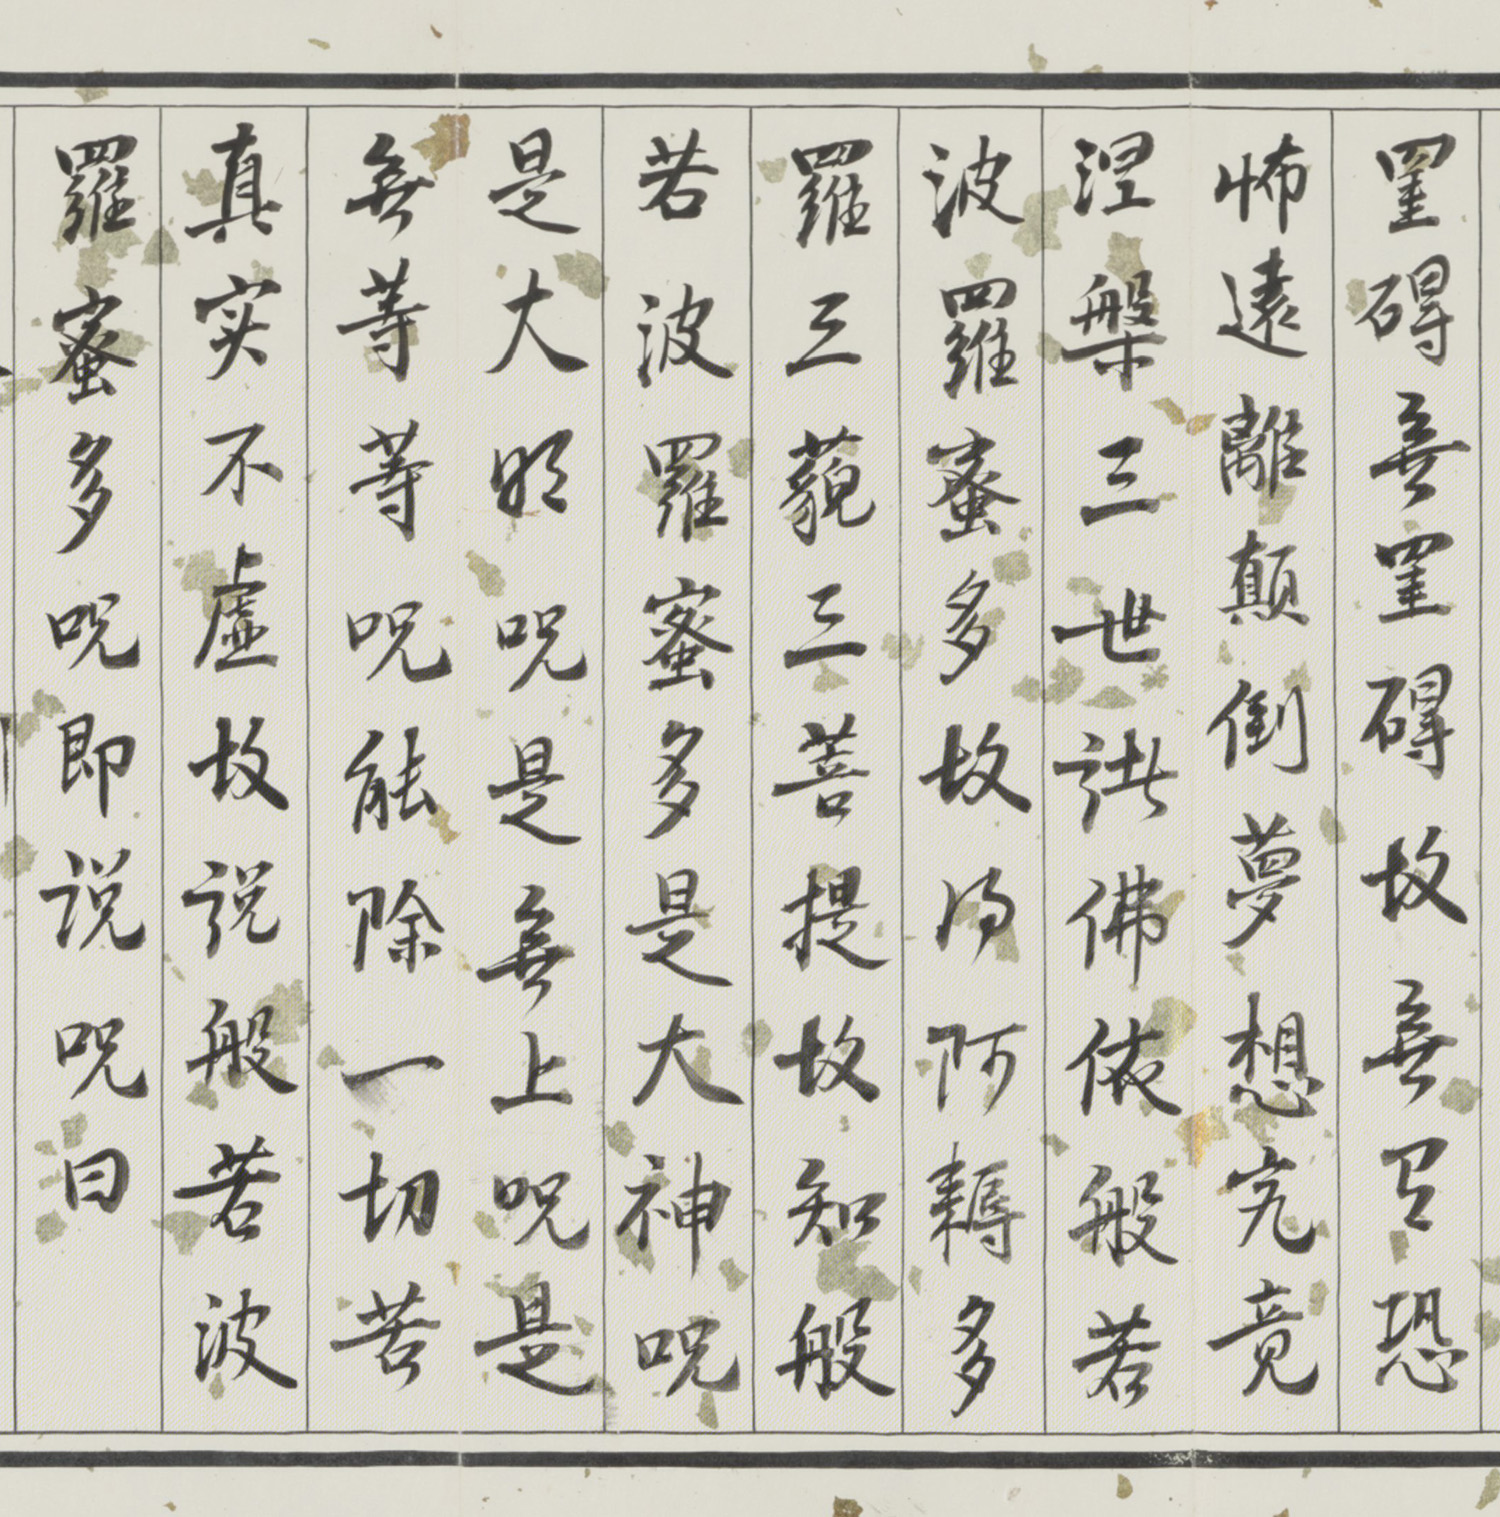 罣碍無罣碍故無有恐
怖遠離顛倒夢想究竟
涅槃三世諸佛依般若
波羅蜜多故得阿耨多
羅三藐三菩提故知般
若波羅蜜多是大神呪
是大明呪是無上呪是
無等等呪能除一切苦
真实不虛故説般若波
羅蜜多呪即説呪曰